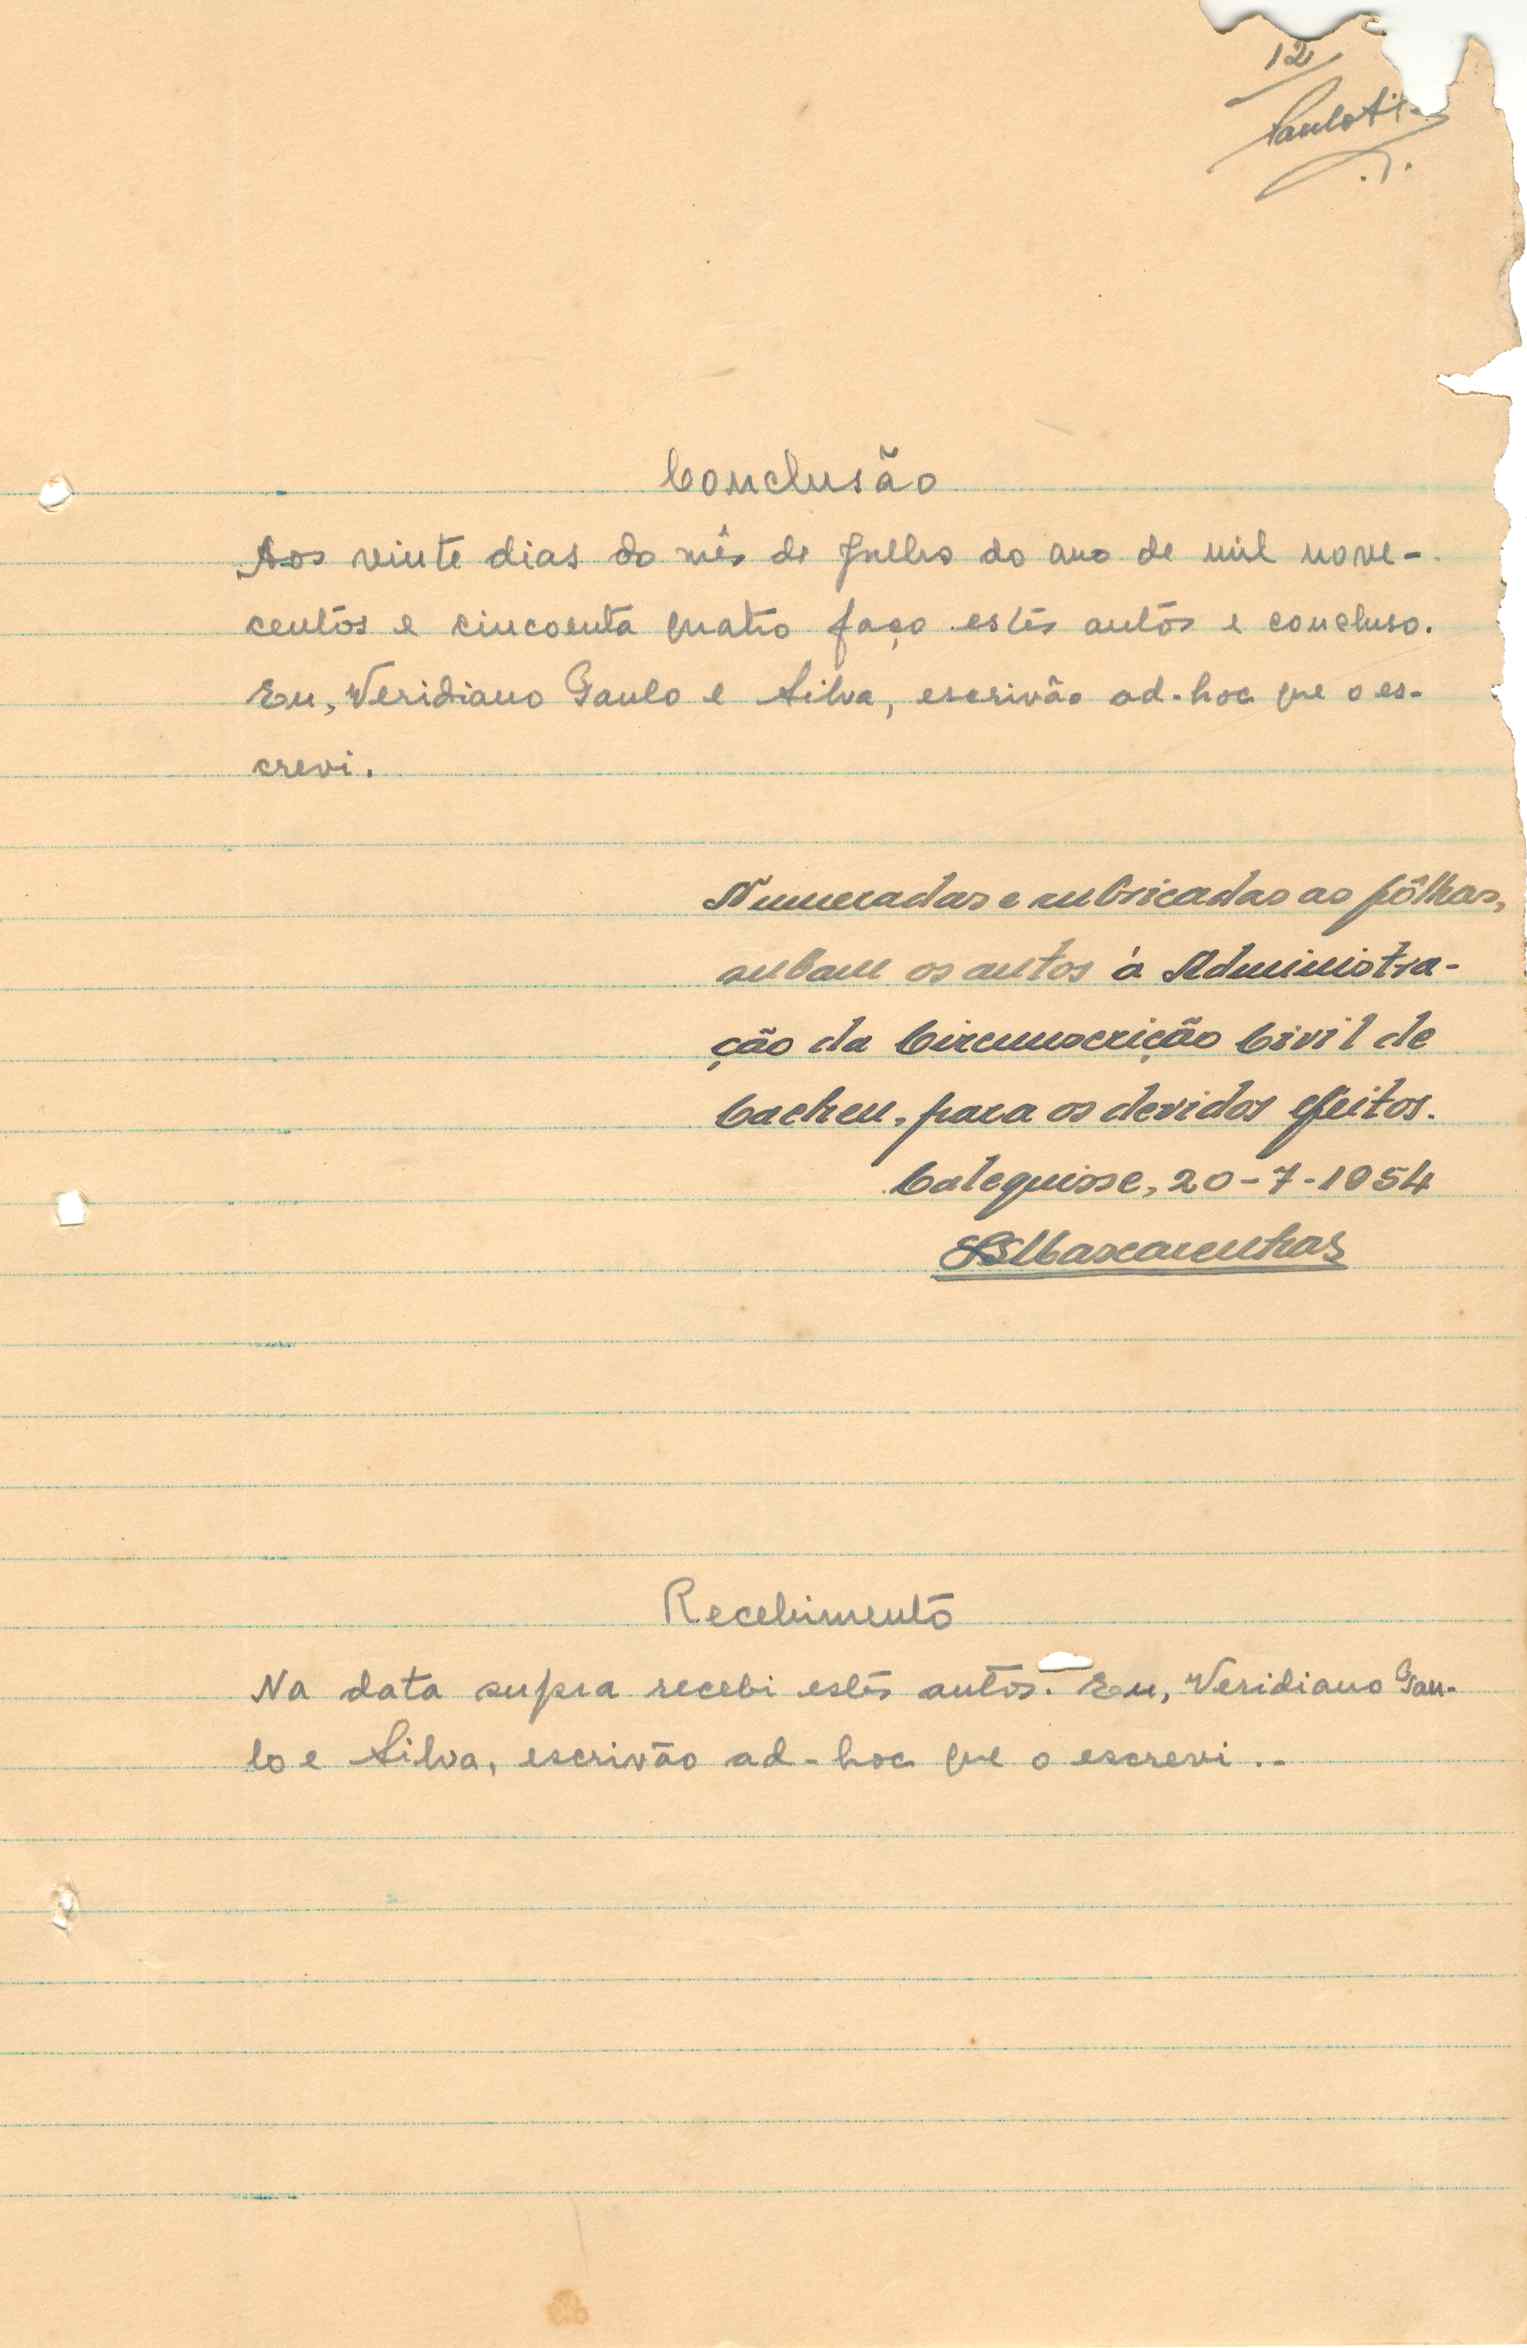 12
Conclusão
Aos vinte dias do mês de Julho do ano de mil nove-
centos e cincoenta quatro faço estes autos e concluso.
Eu, Veridiano Paulo e Silva, escrivão ad-hoc que o es-
crevi.
Numeradas e rubricadas as fôlhas,
subam os autos à Administra-
ção da Circunscrição Civil de
Cacheu, para os devidos efeitos.
Calequisse, 20-7-1954
Mascarenhas
Recebimento
Na data supra recebi estes autos. Eu, Veridiano Pau-
lo e Silva, escrivão ad-hoc que o escrevi.-